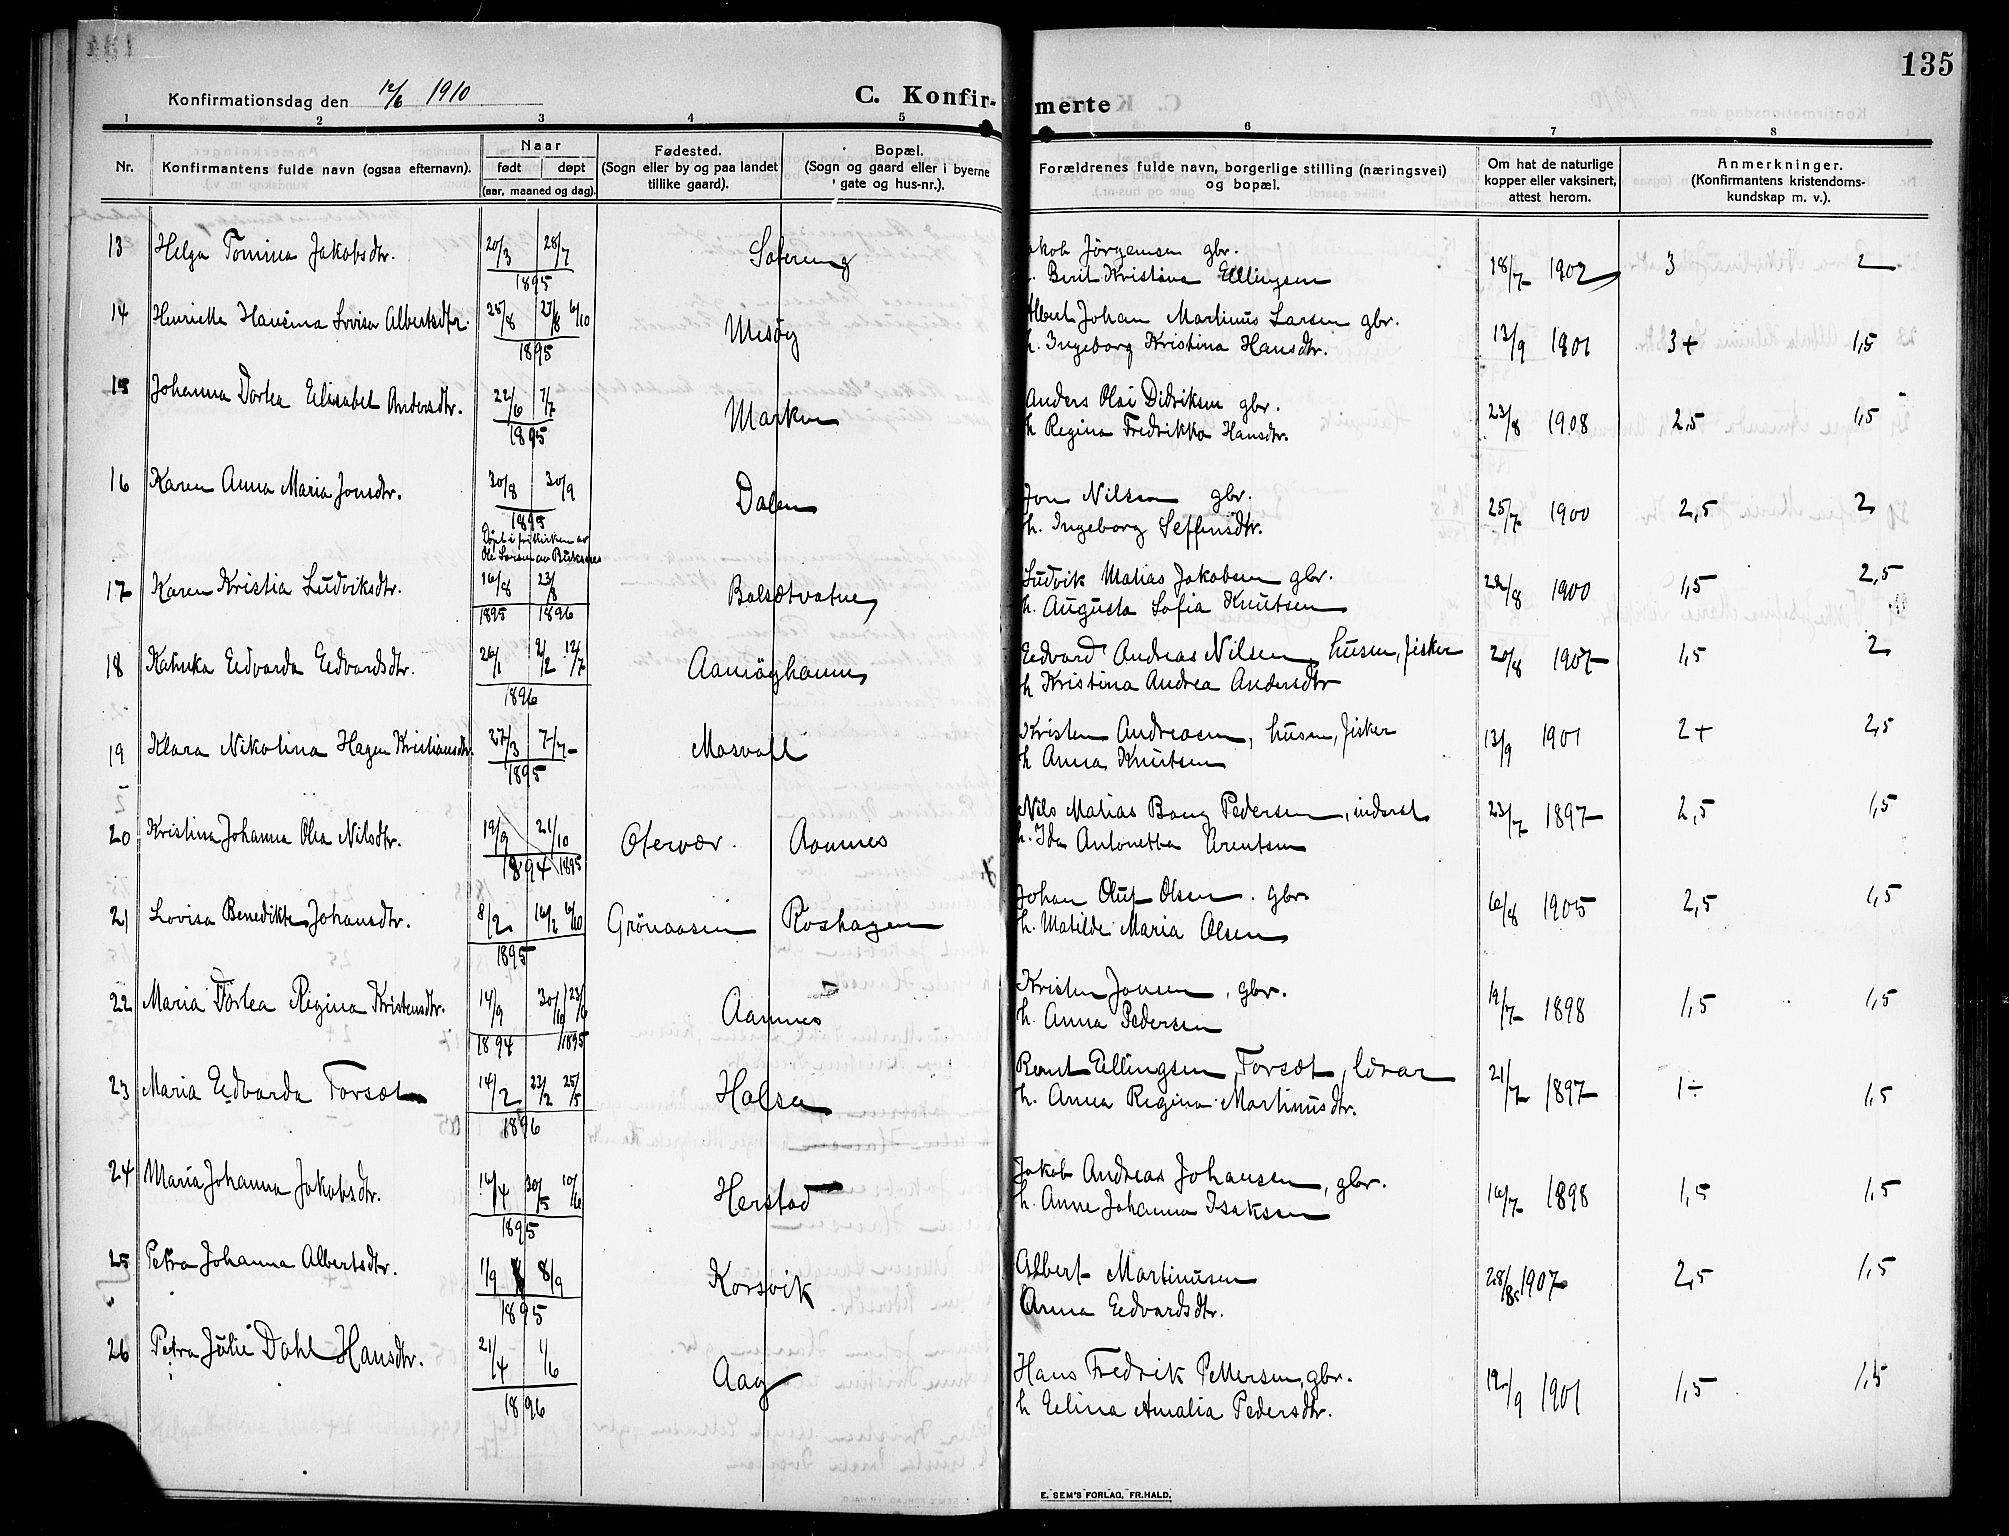 135
Konfirmationsdag den 12/6 1910
C. Konfir-merte
1 2 3 4 5 6 7 8
Nr. Konfirmantens fulde navn (ogsaa efternavn). Naar født døpt (aar, maaned og dag). Fødested. (Sogn eller by og paa landet tillike gaard). Bopæl. (Sogn og gaard eller i byerne gate og hus-nr.). Forældrenes fulde navn, borgerlige stilling (næringsvei) og bopæl. Om hat de naturlige kopper eller vaksinert, attest herom. Anmerkninger. (Konfirmantens kristendoms-kundskap m. v.).
13 Helga Tomina Jakobsdtr. 20/3 28/7 1895 Jørgensen gbr. 18/7 1902 3 2
Berit Kristina Ellingsen
14 Henriette Hansina Lovisa Albertsdtr. 25/8 27/8 6/10 1895 Mesøy Albert Johan Martinus Larsen gbr. 13/9 1901 3+ 1,5
h. Ingeborg Kristina Hansdtr.
15 Johanna Dortea Elisabet Andersdtr. 22/6 7/7 1895 Marken Anders Olai Didriksen gbr. 23/8 1908 2,5 1,5
h Regina Fredrikka Hansdtr.
16 Karen Anna Maria Jonsdtr. 30/8 30/9 1895 Dalen Jon Nilsen gbr. 25/7 1900 2,5 2
h. Ingeborg Seffensdtr.
Døpt i frikirken av
Ole Larsen av Buksnes
17 Karen Kristia Ludviksdtr. 16/8 1895 23/8 1896 Balsætvatne Ludvik Matias Jakobsen gbr. 22/8 1900 1,5 2,5
h. Augusta Sofia Knutsen
18 Edvarda Edvardsdtr. 26/1 12/7 1896 Aamøyhamn Edvard Andreas Nilsen, husm, fisker 20/8 1907 1,5 2
h Kristina Andrea Andersdtr
19 Klara Nikolina Hagen Kristiansdtr. 27/3 7/7 1895 Mosvoll Kristen Andreasen, husm, fisker 13/9 1901 2+ 2,5
h Anna Knutsen
20 Kristina Johanna Olea Nilsdtr. 19/9 1894 21/10 1895 Otervær. Aamnes Nils Matias Bang Pedersen, inderst 23/7 1897 2,5 1,5
h. Ida Antonetta Arentsen
21 Lovisa Benedikte Johansdtr. 8/2 16/2 6/10 1895 Grønaasen Roshagen Johan Oluf Olsen. gbr 16/8 1905 2,5 1,5
h. Matilde Maria Olsen
22 Maria Dortea Regina Kristensdtr. 14/9 1894 30/10 23/6 1895 Aamnes Kristen Jonsen, gbr. 19/7 1898 1,5 1,5
h. Anna Pedersen
23 Maria Edvarda Forsæt 14/2 23/2 25/5 1896 Halsa Bernt Ellingsen Forsæt, lærar 21/7 1897 1÷ 1,5
h. Anna Regina Martinusdtr.
24 Maria Johanna Jakobsdtr. 16/4 30/5 1895 Herstad Jakob Andreas Johansen, gbr. 16/7 1898 1,5 1,5
h. Anne Johanna Isaksen
25 Petra Johanna Albertsdtr. 1/9 8/9 1895 Korsvik Albert Martinusen 28/8 1907 2,5 1,5
Anna Edvardsdtr.
26 Petra Julie Dahl Hansdtr. 21/4 1/6 1896 Aag Hans Fredrik Pettersen, gbr. 12/9 1901 1,5 1,5
h Elina Amalia Pedersdtr.
E. SEM'S FORLAG, FR.HALD.